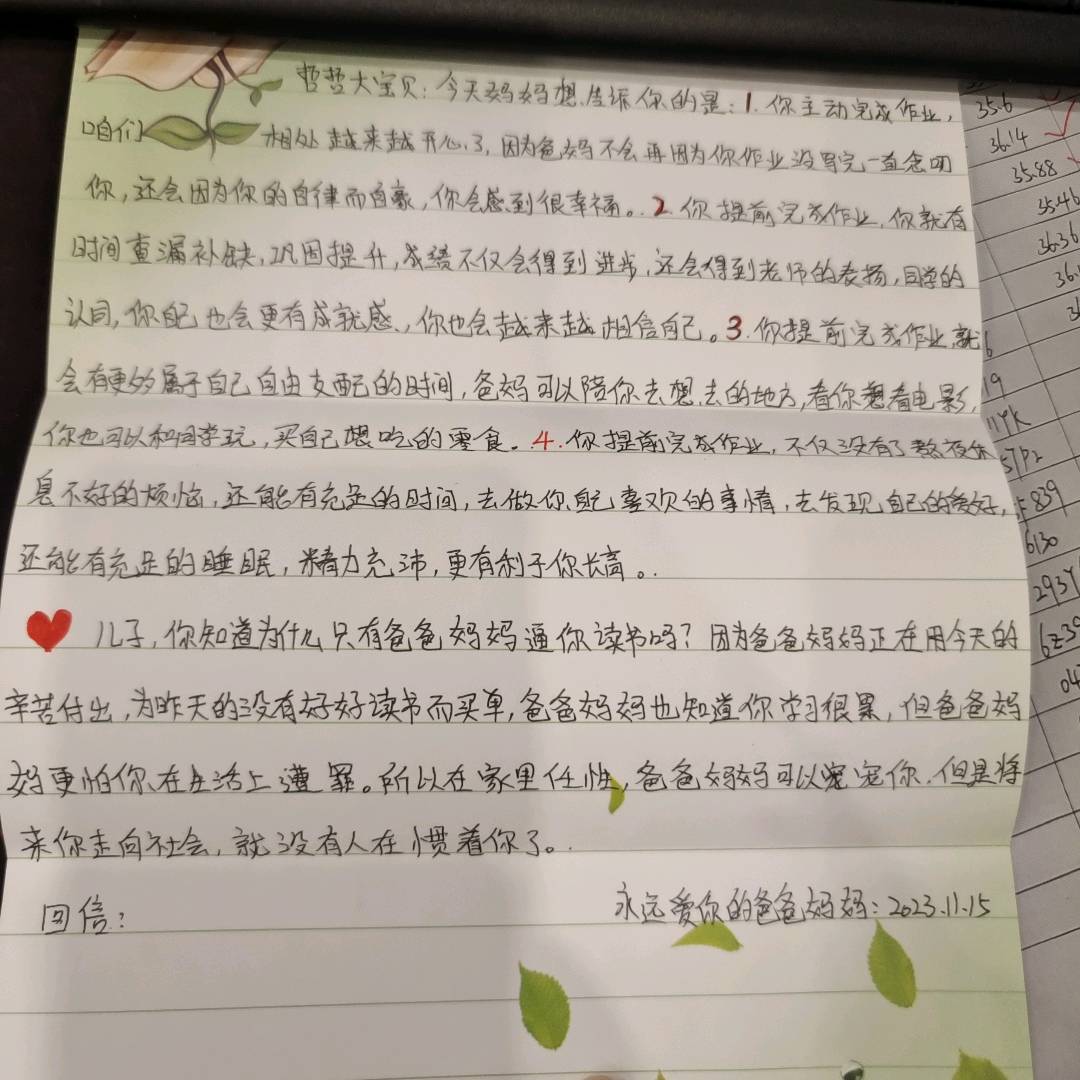 哲哲大宝贝：今天妈妈想告诉你的是：1.你主动完成作业，
咱们相处越来越开心了，因为爸妈不会再因为你作业没写完一直念叨
你，还会因为你的自律而自豪，你会感到很幸福。2.你提前完成作业，你就有
时间查漏补缺，巩固提升，成绩不仅会得到进步，还会得到老师的表扬，同学的
认同，你自己也会更有成就感，你也会越来越相信自己。3.你提前完成作业，就
会有更多属于自己自由支配的时间，爸妈可以陪你去想去的地方，看你想看电影，
你也可以和同学玩，买自己想吃的零食。4.你提前完成作业，不仅没有了熬夜休
息不好的烦恼，还能有充足的时间，去做你自己喜欢的事情，去发现自己的爱好，
还能有充足的睡眠，精力充沛，更有利于你长高。
儿子，你知道为什么只有爸爸妈妈逼你读书吗？因为爸爸妈妈正在用今天的
辛苦付出，为昨天的没有好好读书而买单，爸爸妈妈也知道你学习很累，但爸爸妈
妈更怕你在生活上遭罪。所以在家里任性，爸爸妈妈可以宠宠你，但是将
来你走向社会，就没有人在惯着你了。
永远爱你的爸爸妈妈：2023.11.15
回信：
35.6
36.14
35.88
35.46
36.36
839
6130